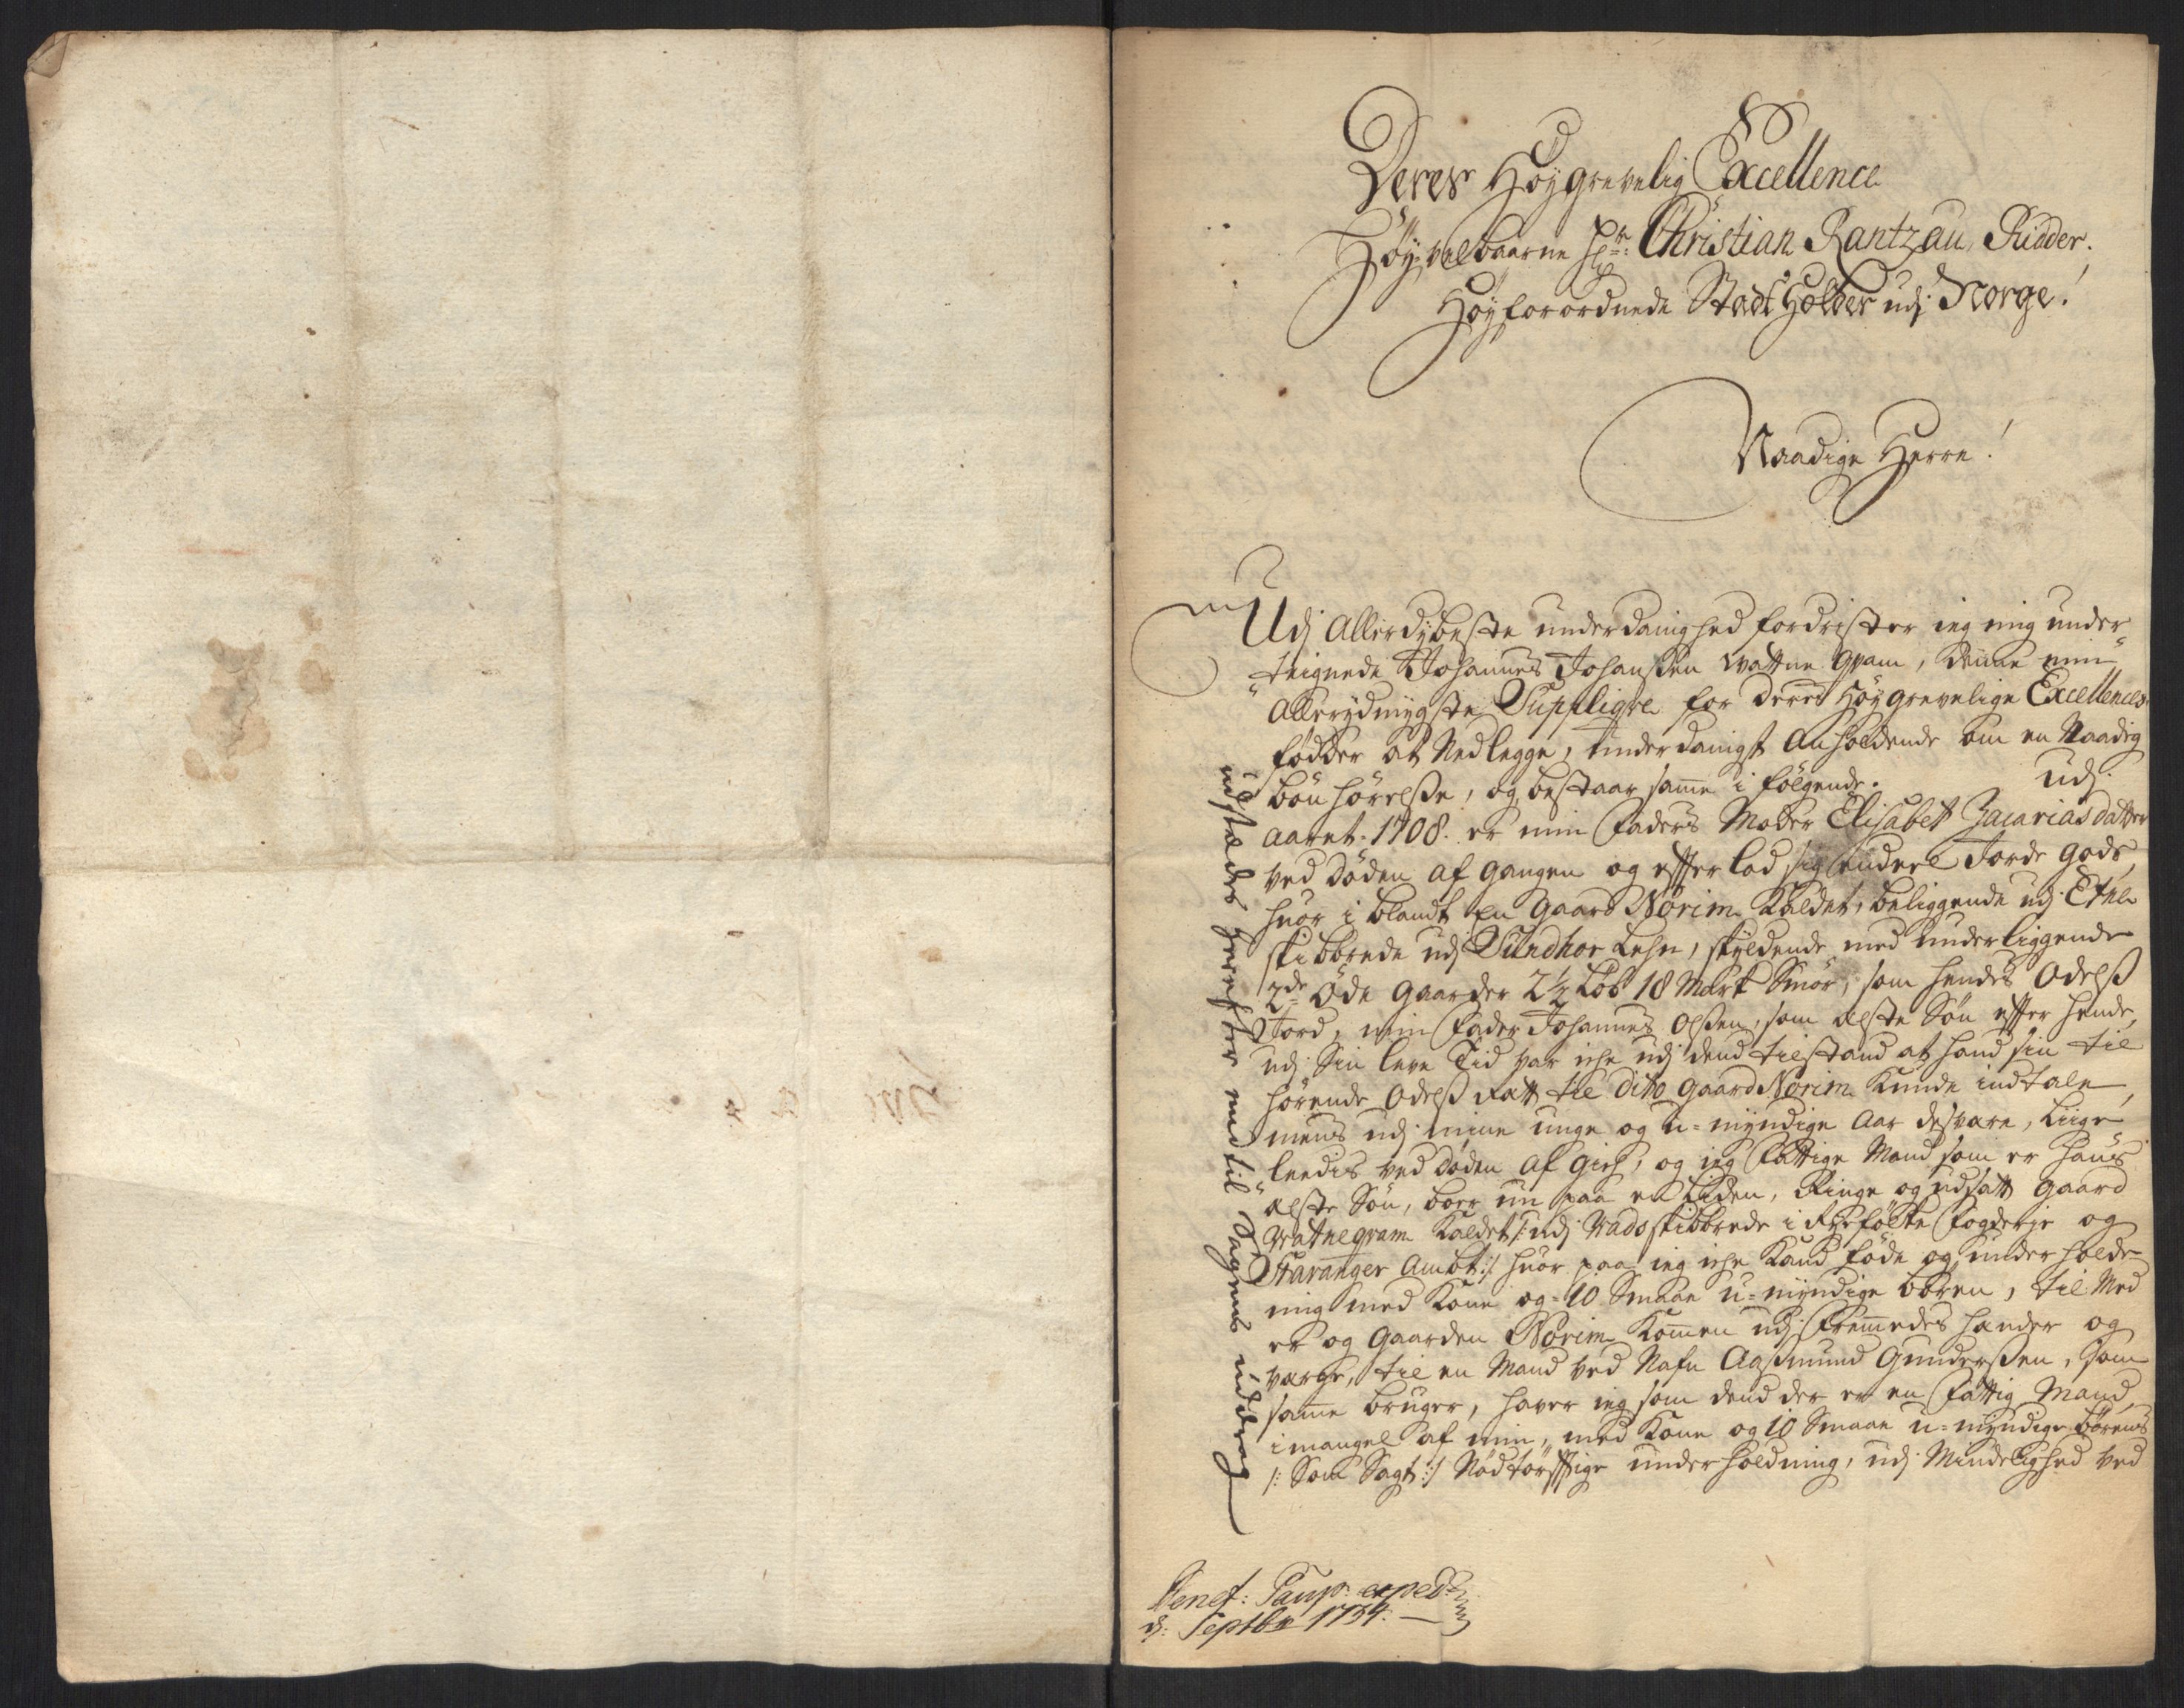 Deres Høygrevelig Excellence
Høy-velbaarne Hr: Christian Rantzau, Ridder.
Høyforordnede Stadt Holder udj Norge!
Naadige Herre!
Udj allerdybeste underdanighed fordrister ieg mig under-
teignede Johannes Johansen Wattne Qvam, denne min
allerydmygste Suppliqve for deres Høygrevelige Excellences
fødder at Nedlegge, underdanigst Anholdende om en Naadig
bønhørelsse, og bestaar samme i følgende. Udj
aaret 1708. er min Faders Moder Elisabet Zacariasdatter
ved døden af gangen og effterlod sig endeel Jorde gods,
huor i blandt En Gaard Nørim Kaldet, beliggende udj Etne
skibbrede udj Sundhor Lehn, skyldende med underliggende
2de Øde Gaarder 2½ Løb 18 Mark Smør, som hendes Odelss
Jord, min Fader Johannes Olssen, som ælste Søn effter hende,
udj Sin leve Tid var iche udj dend tilstand at hand sin til
hørende Odelss Rætt til dito Gaard Nørim Kunde indtale,
mens udj mine unge og u-myndige Aar desvære, liige
leedis ved døden af gich, og ieg Fattige Mand som er hans
ælste Søn, boer nu paa en Liden, Ringe og udsatt gaard
Watneqvam Kaldet /: udj Wads skibbrede i Ryefølke Fogderje og
Stavanger Ambt :/ huor paa ieg iche Kand føde og underholde
mig med Kone og 10 Smaae u-myndige børen, til Med
er og Gaarden Nørim Kommen udj Fremmedes hænder og
værge, til en Mand ved Nafn Aassmund Gunderssen, som
samme bruger, haver ieg som dend der er en Fattig Mand
i mangel af min, med Kone og 10 Smaae u-myndige børens
/: Som Sagt :/ Nødtørfftige underholdning, udj Mindelighed ved
udstædes herefter ind til Sagens uddrag
Benef: Paup: exped:
d: Septbr 1734.